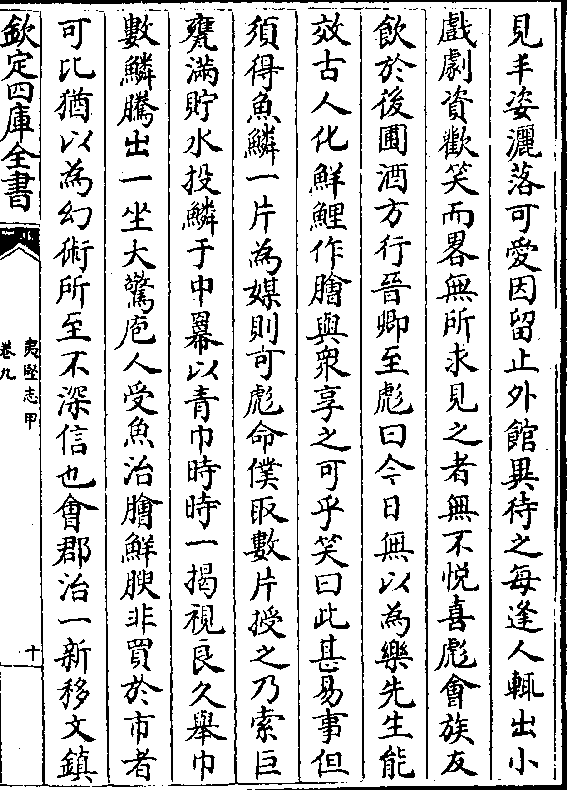 見丰姿灑落可愛因留止外館異待之每逢人輒出小
戲劇資歡笑而畧無所求見之者無不悦喜彪會族友
飲於後圃酒方行晉卿至彪曰今日無以為樂先生能
效古人化鮮鯉作膾與衆享之可乎笑曰此甚易事但
須得魚鱗一片為媒則可彪命僕取數片授之乃索巨
甕滿貯水投鱗于中羃以青巾時時一揭視良久舉巾
數鱗騰出一坐大驚庖人受魚治膾鮮腴非買於市者
可比猶以為幻術所至不深信也會郡治一新移文鎮
欽定四庫全書
夷堅志甲
卷九
十